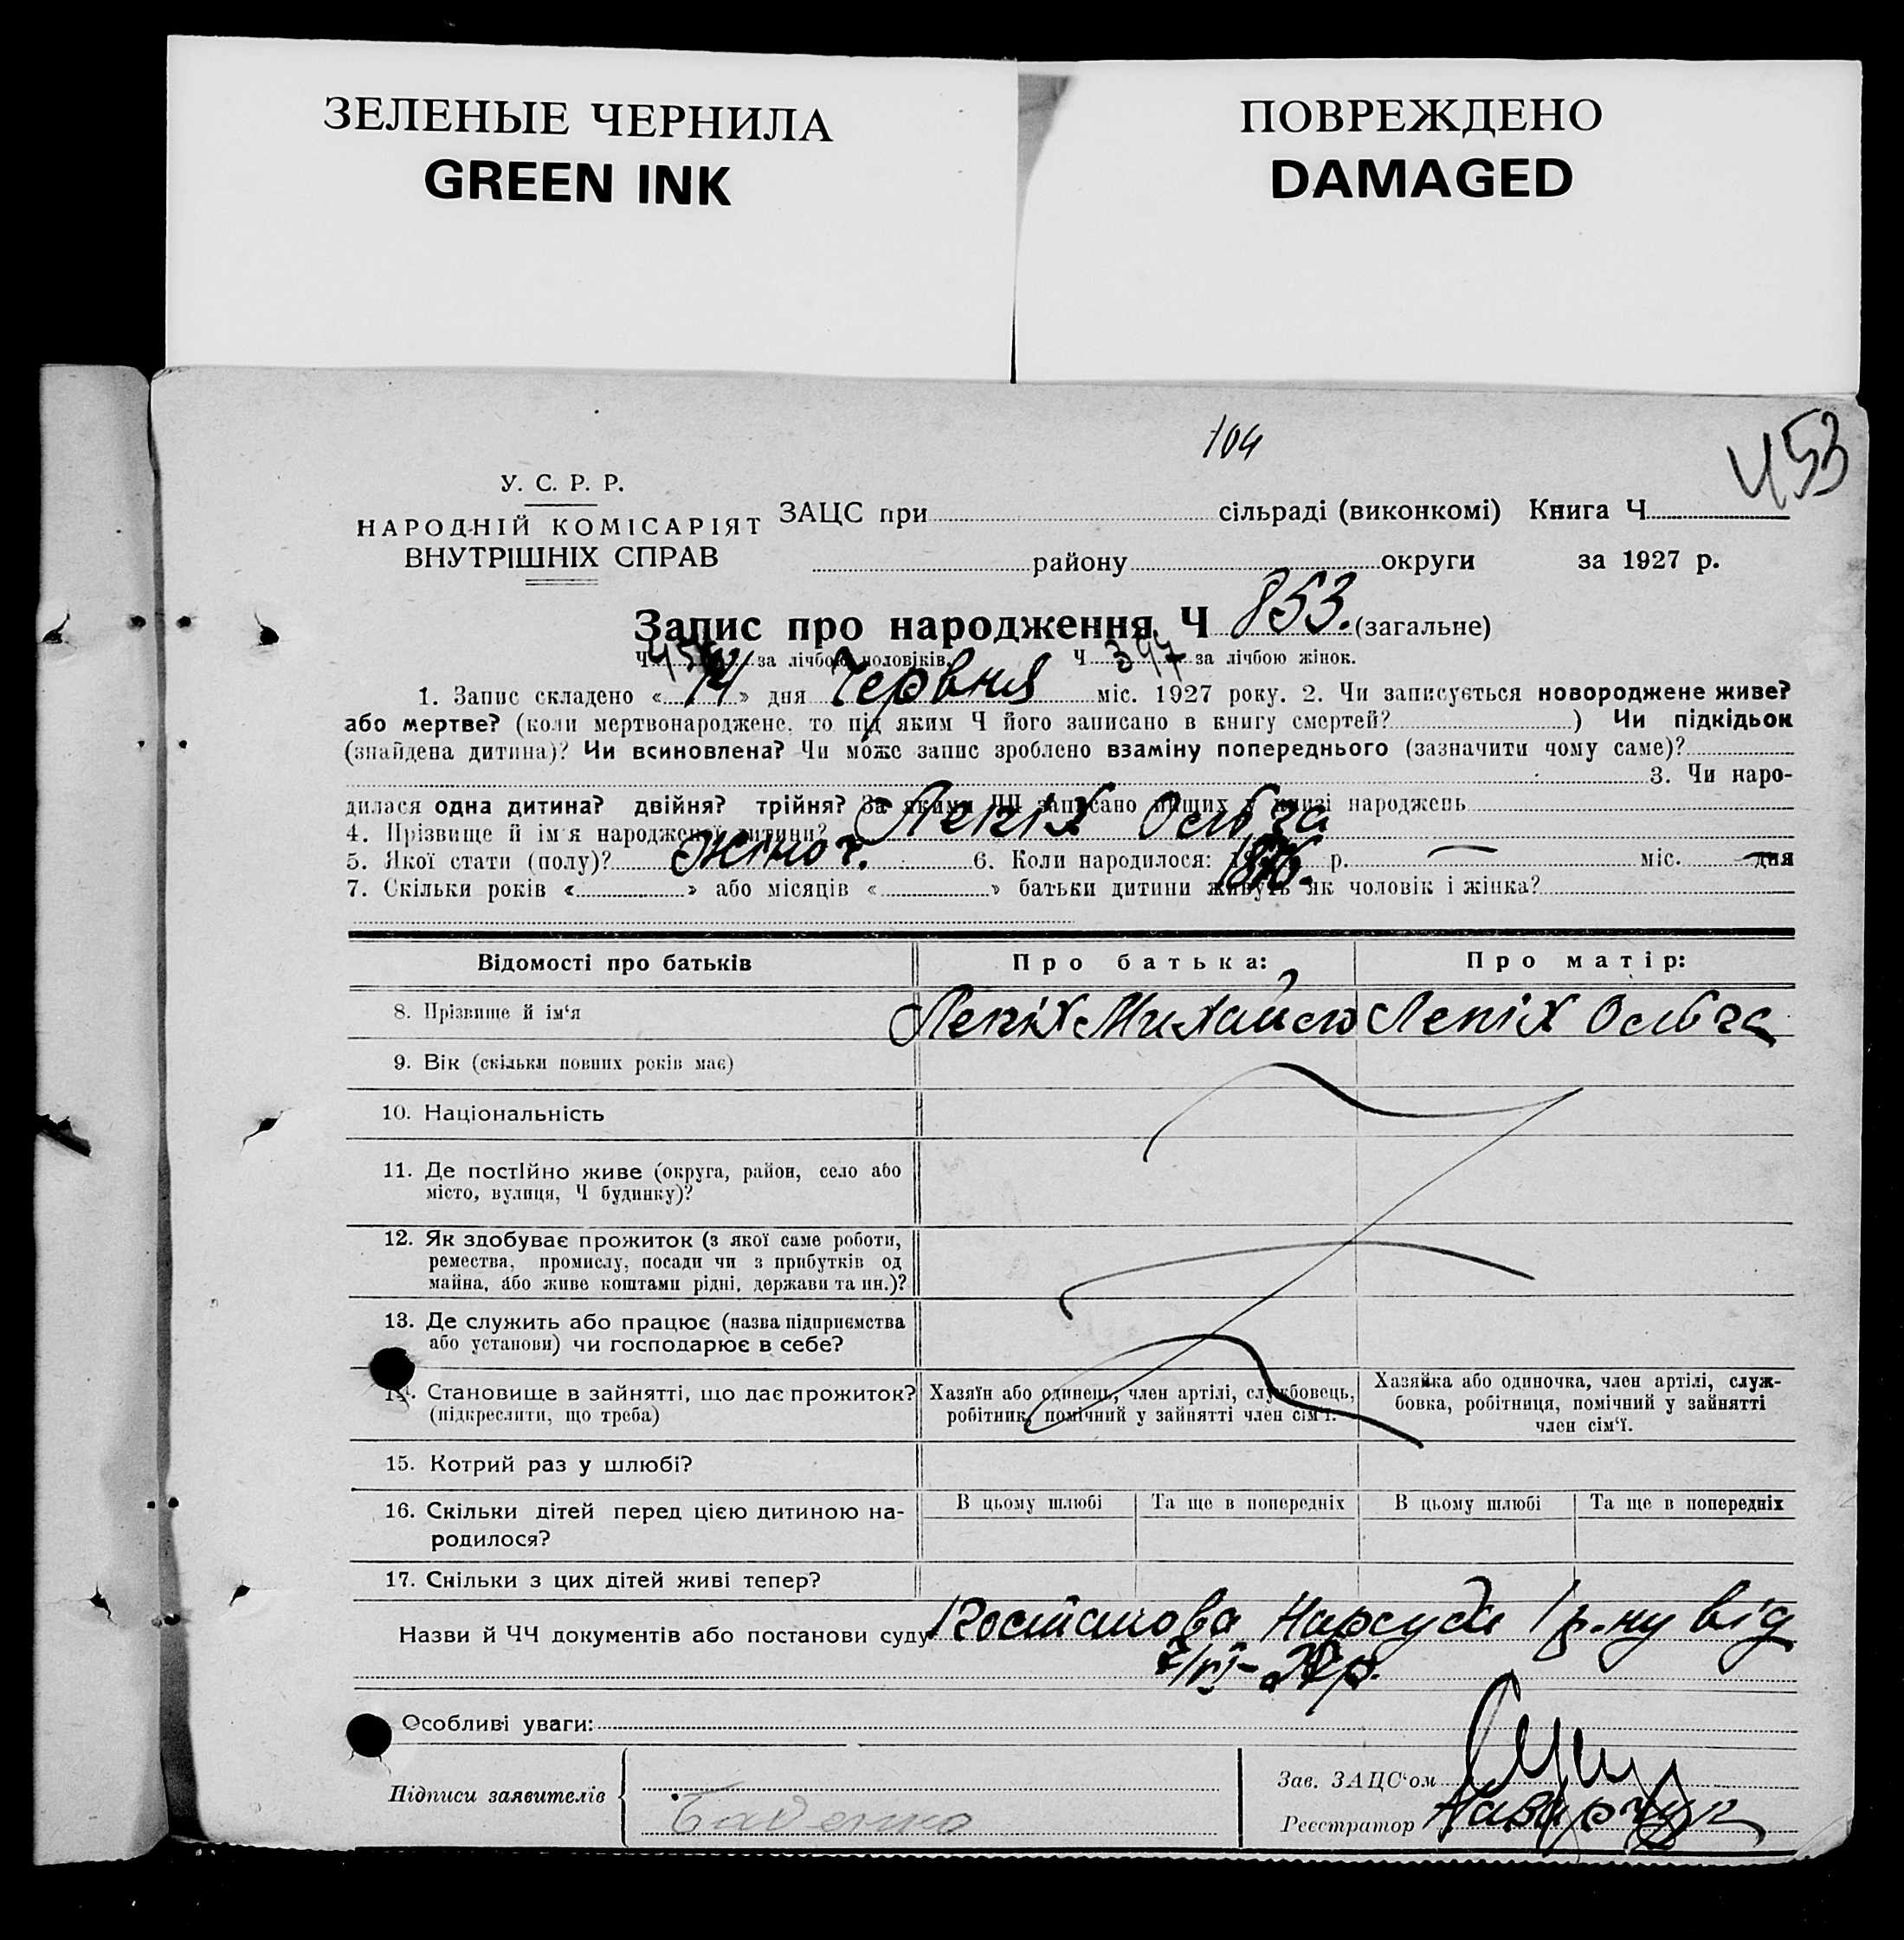 ЗЕЛЕНЫЕ ЧЕРНИЛА
GREEN INK
ПОВРЕЖДЕНО
DAMAGED
104
453
У. С. Р. Р.
НАРОДНІЙ КОМІСАРІЯТ
ВНУТРІШНІХ СПРАВ
ЗАЦС при сільраді (виконкомі) Книга Ч
району округи за 1927 р.
Запис про народження Ч 853. (загальне)
Ч за лічбою чоловіків. Ч 397 за лічбою жінок.
1. Запис складено « 14 » дня Червня міс. 1927 року. 2. Чи записується новороджене живе?
або мертве? (коли мертвонароджене, то під яким Ч його записано в книгу смертей? ) Чи підкідьок
(знайдена дитина)? Чи всиновлена? Чи може запис зроблено взаміну попереднього (зазначити чому саме)?
3. Чи наро-
дилася одна дитина? двійня? трійня? За якими ЧЧ записано инших у книзі народжень
4. Прізвище й ім'я народженої дитини? Лепіх Ольга
5. Якої стати (полу)? жіноч. 6. Коли народилося: 1876. р. — міс. — дня
7. Скільки років « » або місяців « » батьки дитини живуть як чоловік і жінка?
Відомості про батьків Про батька: Про матір:
8. Прізвище й ім'я Лепіх Михайло Лепіх Ольга
9. Вік (скільки повних років має)
10. Національність
11. Де постійно живе (округа, район, село або
місто, вулиця, Ч будинку)?
12. Як здобуває прожиток (з якої саме роботи,
ремества, промислу, посади чи з прибутків од
майна, або живе коштами рідні, держави та ин.)?
13. Де служить або працює (назва підприємства
або установи) чи господарює в себе?
14. Становище в зайнятті, що дає прожиток?
(підкреслити, що треба)
Хазяїн або одинець, член артілі, службовець,
робітник, помічний у зайнятті член сім'ї.
Хазяйка або одиночка, член артілі, служ-
бовка, робітниця, помічний у зайнятті
член сім'ї.
15. Котрий раз у шлюбі?
16. Скільки дітей перед цією дитиною на-
родилося?
В цьому шлюбі Та ще в попередніх В цьому шлюбі Та ще в попередніх
17. Скільки з цих дітей живі тепер?
Назви й ЧЧ документів або постанови суду Постанова Нарсуда 1 р-ну від
7/VI-27р.
Особливі уваги:
Підписи заявителів
Зав. ЗАЦС'ом
Реєстратор